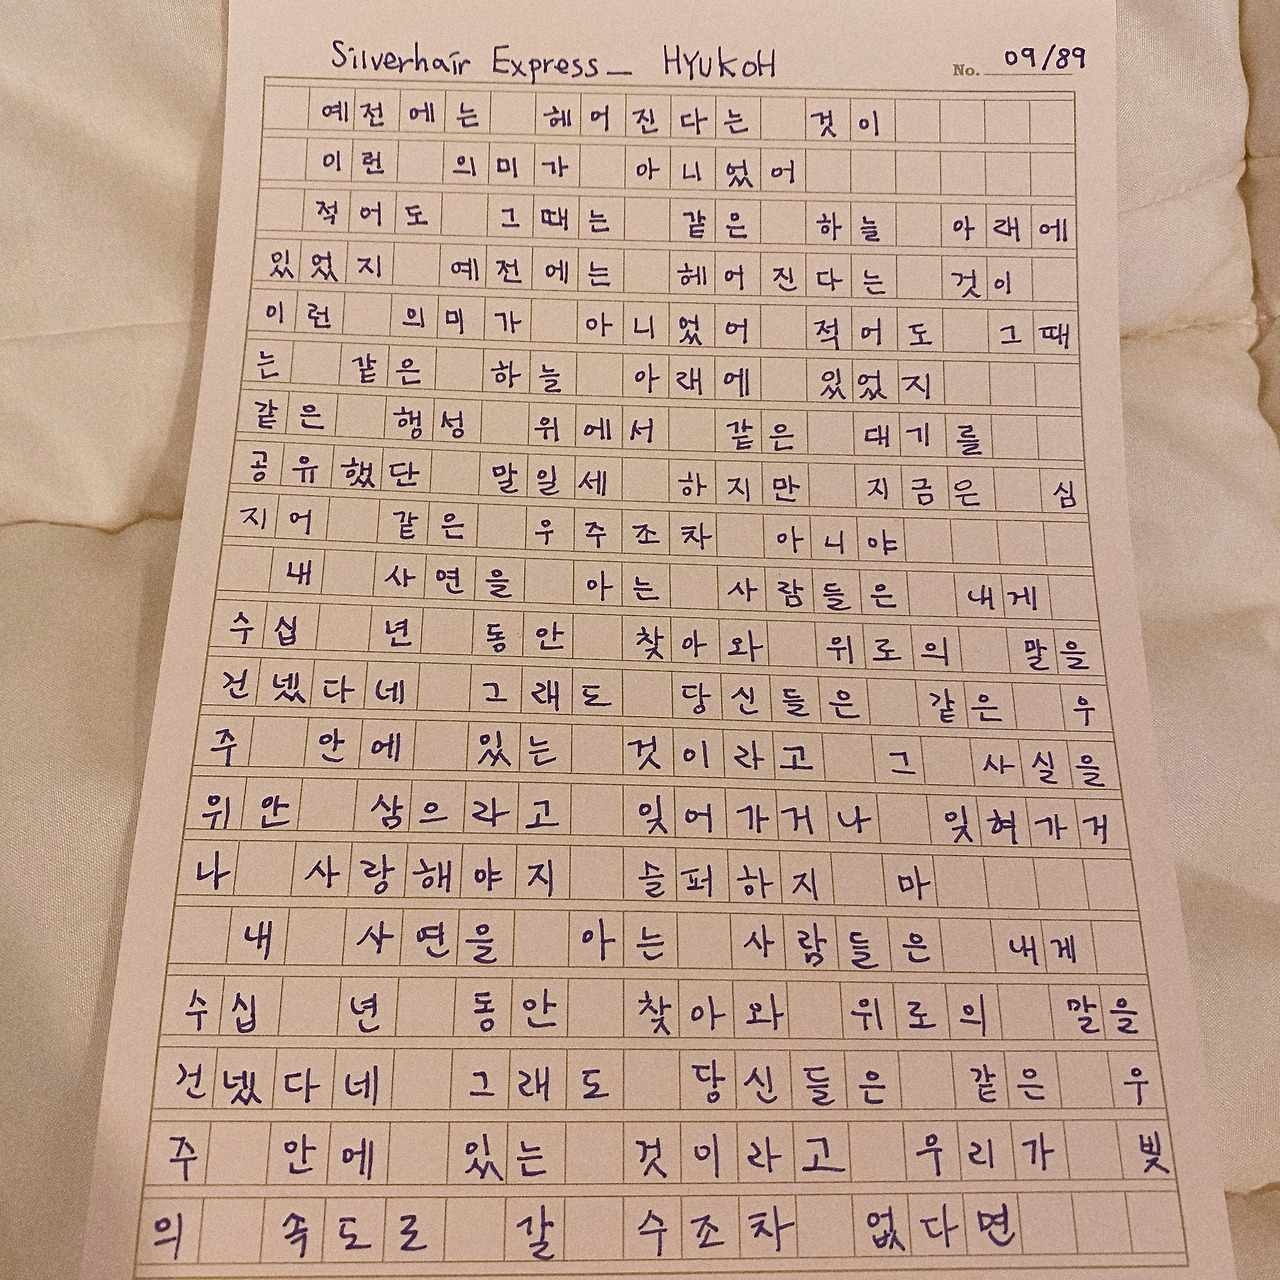 Silverhair Express_ HYUKOH
No. 09/89
예전에는 헤어진다는 것이
이런 의미가 아니었어
적어도 그때는 같은 하늘 아래에
있었지 예전에는 헤어진다는 것이
이런 의미가 아니었어 적어도 그때
는 같은 하늘 아래에 있었지
같은 행성 위에서 같은 대기를
공유했단 말일세 하지만 지금은 심
지어 같은 우주조차 아니야
내 사연을 아는 사람들은 내게
수십 년 동안 찾아와 위로의 말을
건넸다네 그래도 당신들은 같은 우
주 안에 있는 것이라고 그 사실을
위안 삼으라고 잊어가거나 잊혀가거
나 사랑해야지 슬퍼하지 마
내 사연을 아는 사람들은 내게
수십 년 동안 찾아와 위로의 말을
건넸다네 그래도 당신들은 같은 우
주 안에 있는 것이라고 우리가 빛
의 속도로 갈 수조차 없다면